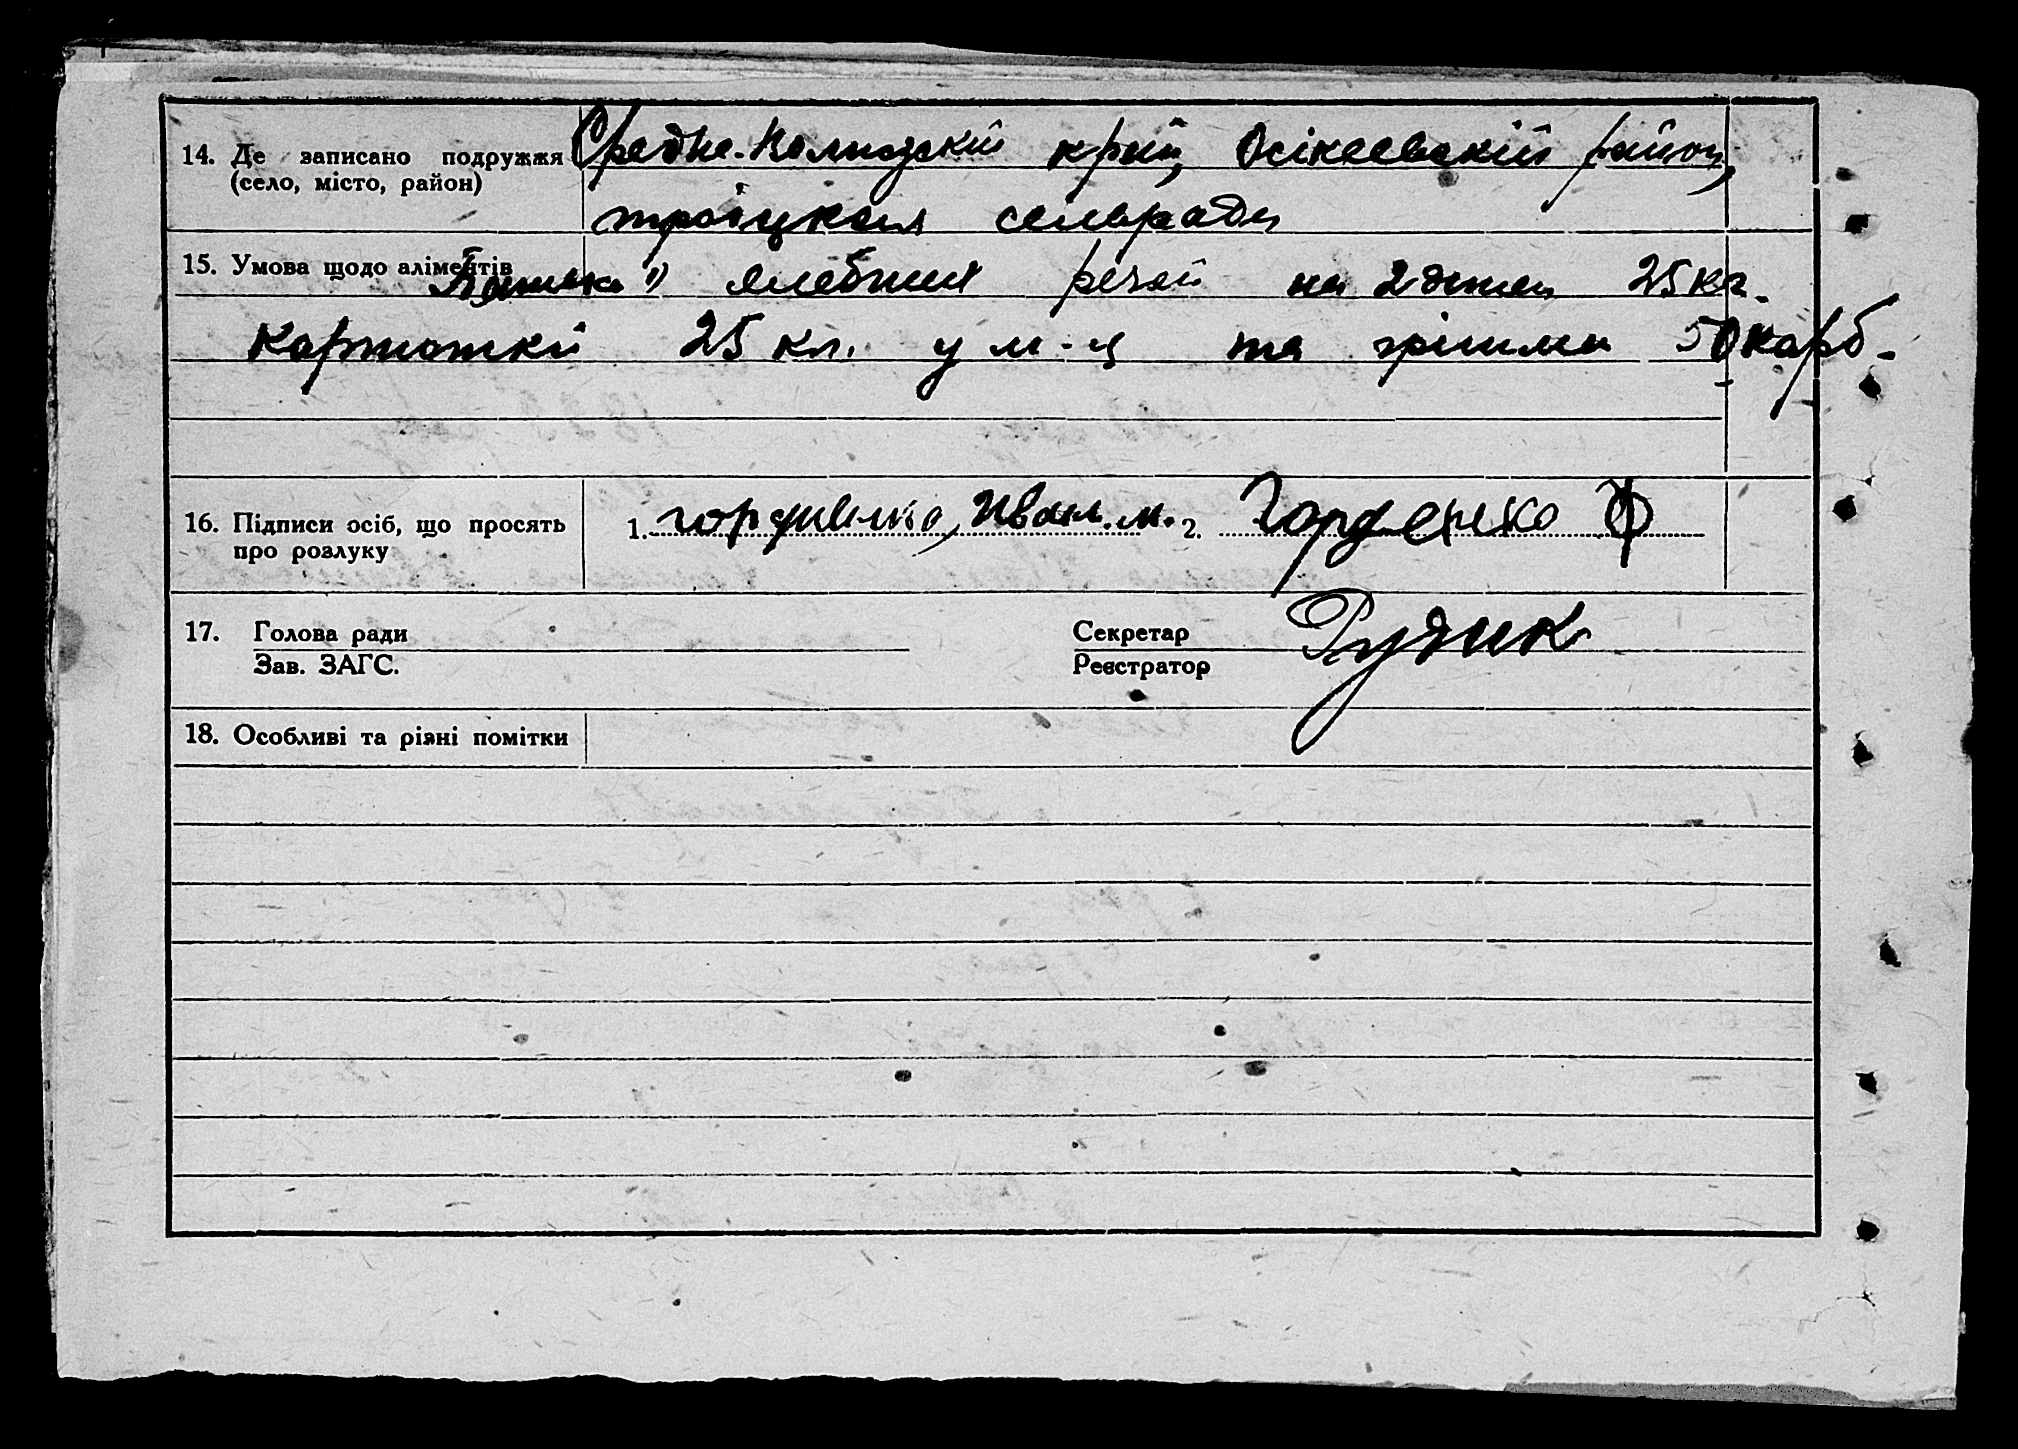 14. Де записано подружжя Средне-Волжский край, Осікеевский район,
(село, місто, район)
троіцкая сельрада
15. Умова щодо аліментів Батько речей на 2 дітей 25 кг.
картошки 25 кл. у м-ц та грішми 50 карб.
16. Підписи осіб, що просять 1. Иван. м. 2. Горденко Ф
про розлуку
17. Голова ради Секретар Рудик
Зав. ЗАГС. Реєстратор
18. Особливі та різні помітки